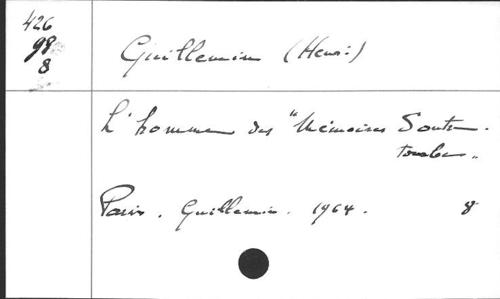 426
98
8
Guillemin (Henri)
L'homme des "Mémoires d'Outre-
tombe".
Paris. Guillemin. 1964. 8